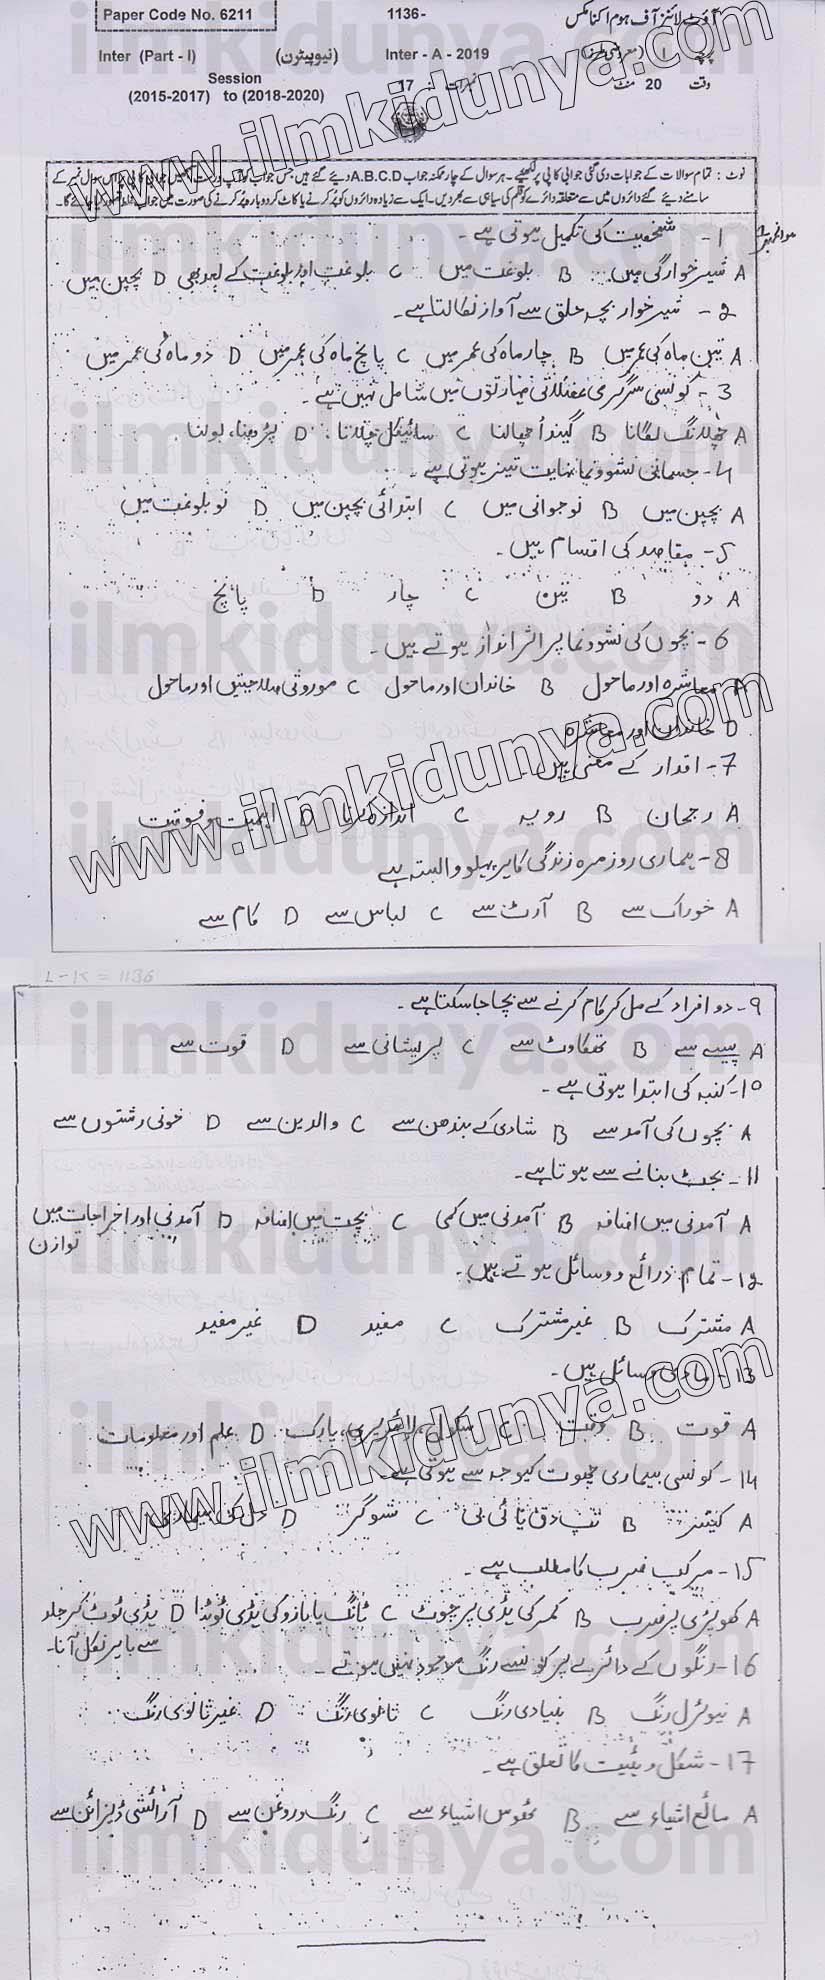 Paper Code No. 6211
1136-
آؤٹ لائنز آف ہوم اکنامکس
Inter (Part - I) (نیو پیٹرن) Inter - A - 2019 پرچہ I (معروضی طرز)
Session
(2015-2017) to (2018-2020)
نمبرات : 17
وقت 20 منٹ
نوٹ : تمام سوالات کے جوابات دی گئی جوابی کاپی پر لکھیے ۔ ہر سوال کے چار ممکنہ جواب A.B.C.D دیئے گئے ہیں جس جواب کو آپ درست سمجھیں جوابی کاپی پر اس سوال نمبر کے
سامنے دیئے گئے دائروں میں سے متعلقہ دائرے کو قلم کی سیاہی سے بھر دیں۔ ایک سے زیادہ دائروں کو پُر کرنے یا کاٹ کر دوبارہ پُر کرنے کی صورت میں جواب غلط تصور کیا جائے گا۔
سوال نمبر 1
1- شخصیت کی تکمیل ہوتی ہے ۔
A شیر خوارگی میں B بلوغت میں C بلوغت اور بلوغت کے بعد بھی D بچپن میں
2- شیر خوار بچہ حلق سے آواز نکالتا ہے۔
A تین ماہ کی عمر میں B چار ماہ کی عمر میں C پانچ ماہ کی عمر میں D دو ماہ کی عمر میں
3- کونسی سرگرمی عضلاتی مہارتوں میں شامل نہیں ہے۔
A چھلانگ لگانا B گیند اُچھالنا C سائیکل چلانا D پڑھنا، بولنا
4- جسمانی نشوونما نہایت تیز ہوتی ہے ۔
A بچپن میں B نوجوانی میں C ابتدائی بچپن میں D نوبلوغت میں
5- مقاصد کی اقسام ہیں ۔
A دو B تین C چار D پانچ
6- بچوں کی نشوونما پر اثر انداز ہوتے ہیں ۔
A معاشرہ اور ماحول B خاندان اور ماحول C موروثی صلاحیتیں اور ماحول
D خاندان اور معاشرہ
7- اقدار کے معنی ہیں۔
A رجحان B رویہ C اندازہ کرنا D اہمیت و فوقیت
8- ہماری روزمرہ زندگی کا ہر پہلو وابستہ ہے
A خوراک سے B آرٹ سے C لباس سے D کام سے
L-K = 1136
9- دو افراد کے مل کر کام کرنے سے بچا جا سکتا ہے ۔
A پیسے سے B تھکاوٹ سے C پریشانی سے D قوت سے
10- کنبہ کی ابتدا ہوتی ہے ۔
A بچوں کی آمد سے B شادی کے بندھن سے C والدین سے D خونی رشتوں سے
11- بجٹ بنانے سے ہوتا ہے۔
A آمدنی میں اضافہ B آمدنی میں کمی C بچت میں اضافہ D آمدنی اور اخراجات میں
توازن
12- تمام ذرائع و وسائل ہوتے ہیں۔
A مشترک B غیر مشترک C مفید D غیر مفید
13- مادی وسائل ہیں۔
A قوت B وقت C سکول، لائبریری، پارک D علم اور معلومات
14- کونسی بیماری چھوت کیوجہ سے ہوتی ہے۔
A کینسر B تپ دق یا ٹی بی C شوگر D دل کی بیماری
15- مرکب ضرب کا مطلب ہے ۔
A کھوپڑی پر ضرب B کمر کی ہڈی پر چوٹ C ٹانگ یا بازو کی ہڈی ٹوٹنا D ہڈی ٹوٹ کر جلد
سے باہر نکل آنا۔
16- رنگوں کے دائرے پر کونسے رنگ موجود نہیں ہوتے ۔
A نیوٹرل رنگ B بنیادی رنگ C ثانوی رنگ D غیر ثانوی رنگ
17- شکل و ہیئت کا تعلق ہے ۔
A مائع اشیاء سے B ٹھوس اشیاء سے C رنگ و روغن سے D آرائشی ڈیزائن سے
www.ilmkidunya.com
www.ilmkidunya.com
www.ilmkidunya.com
ilmkidunya.com
ilmkidunya.com
ilmkidunya.com
ilmkidunya.com
ilmkidunya.com
ilmkidunya.com